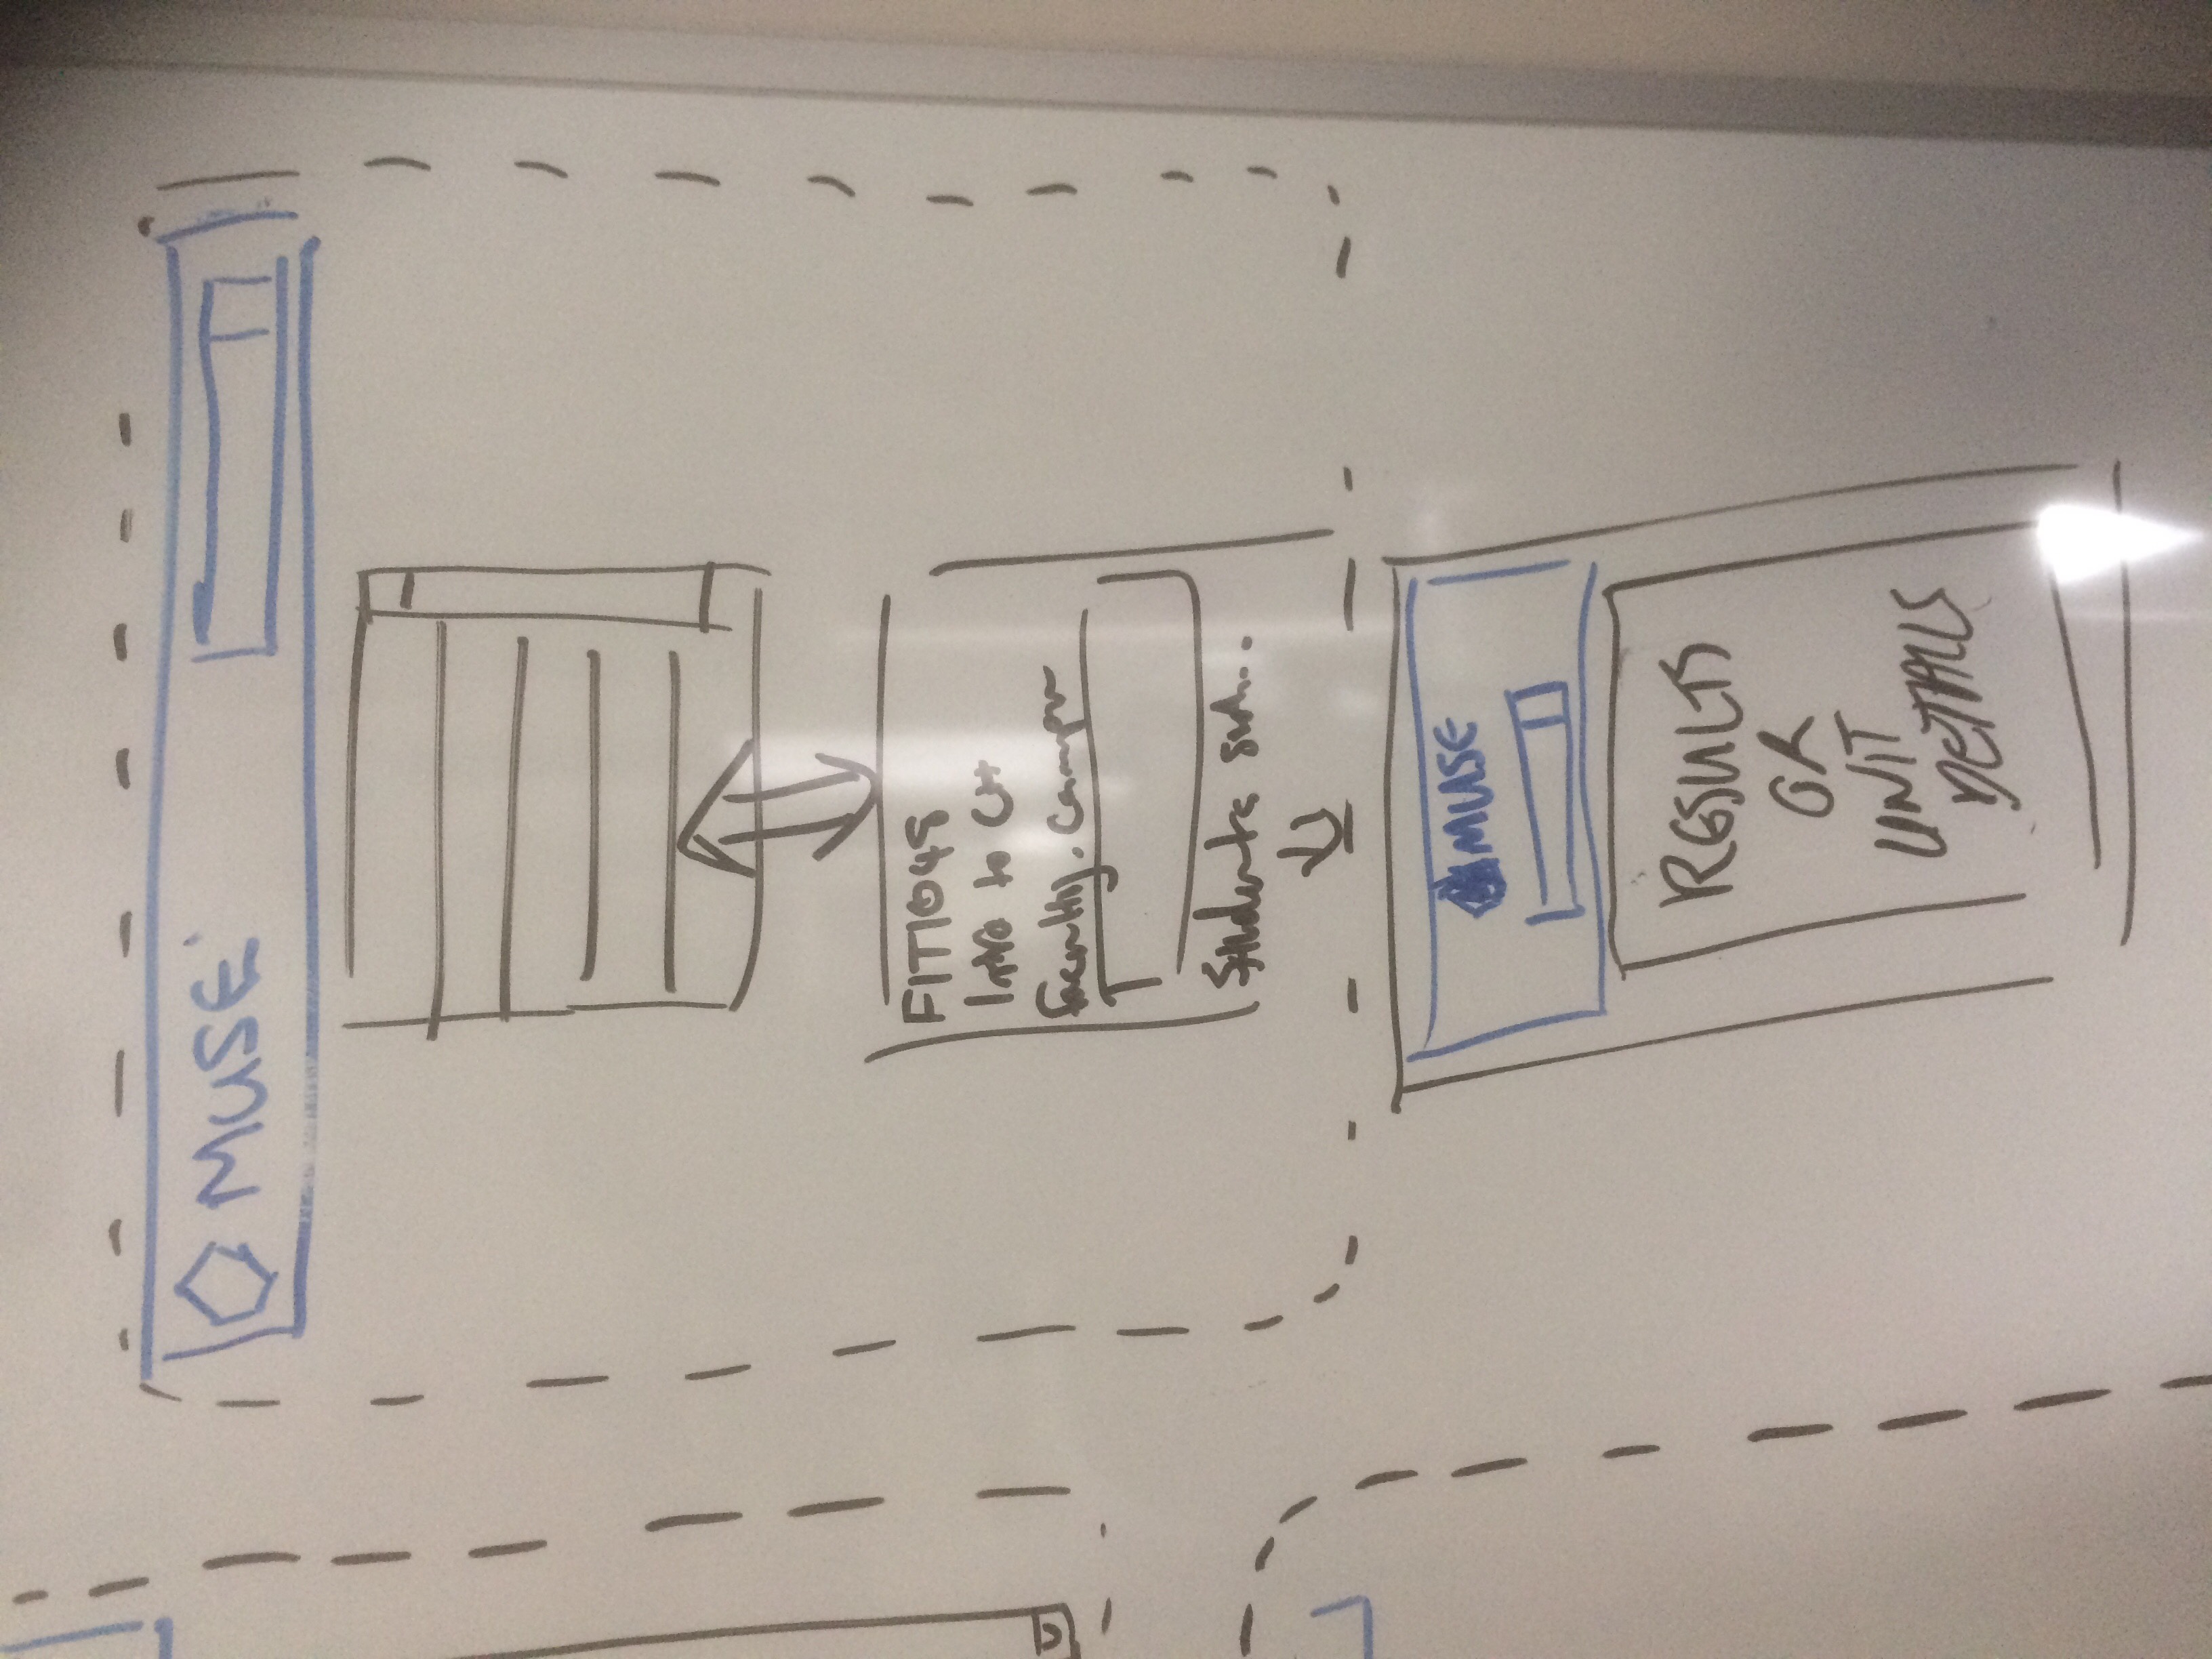 MUSE
FIT1048
Intro to C++
faculty. campus
Students
MUSE
RESULTS
OR
UNIT
DETAILS